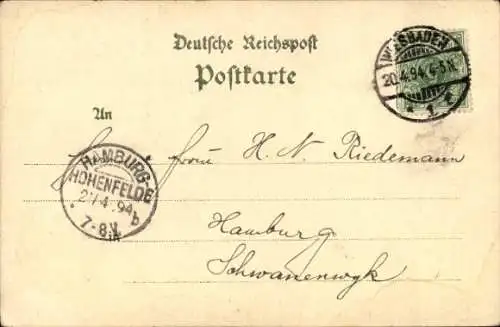 Deutsche Reichspost
Postkarte
WIESBADEN
20.4.94. 4-5N.
* 1 *
An
Herrn H. N. Riedemann
HAMBURG-
HOHENFELDE
21/4.94
7-8V.
b
Hamburg
Schwanenwyk